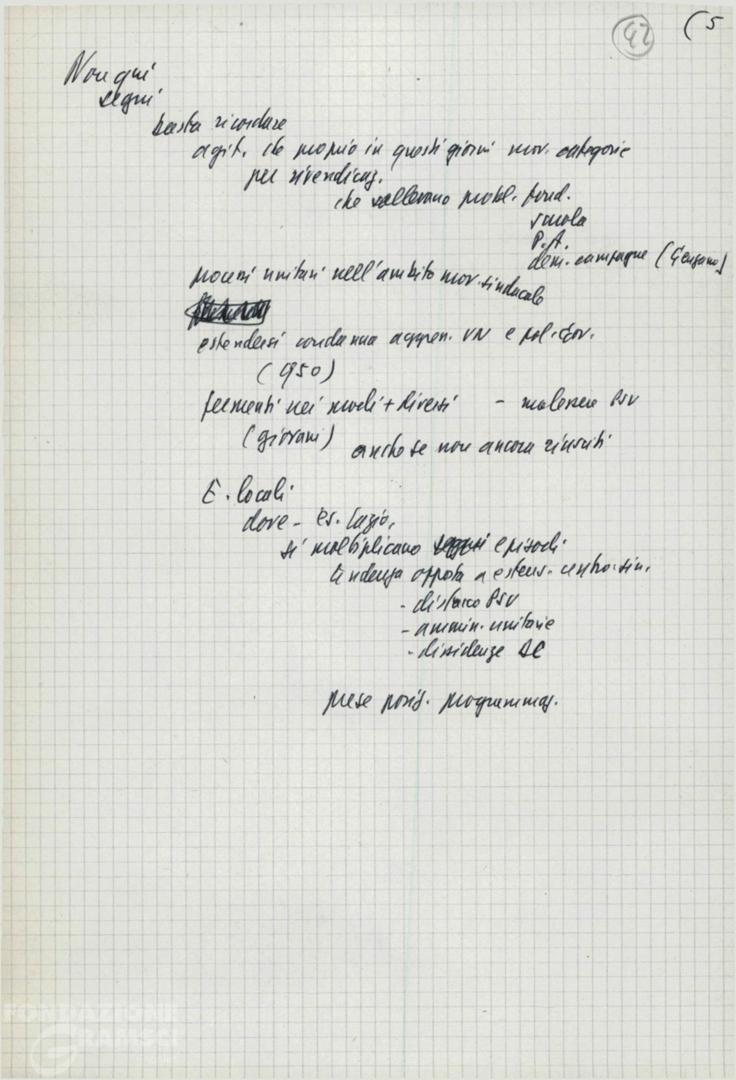 42 (5
Non qui
segni
basta ricordare
agit. che proprio in questi giorni mov. categorie
per rivendicaz.
che sollevano probl. fond.
scuola
P.A.
dem. campagne (Genzano)
processi unitari nell'ambito mov. sindacale
estendersi condanna aggress. VN e pol. gov.
(950)
fermenti nei modi + diversi - malessere PSU
(giovani) anche se non ancora riusciti
E. locali
dove - es. Lazio,
si moltiplicano episodi
tendenza opposta a estens. centro-sin.
- distacco PSU
- ammin. unitarie
- dissidenze DC
prese posiz. programmaz.
FONDAZIONE
GRAMSCI